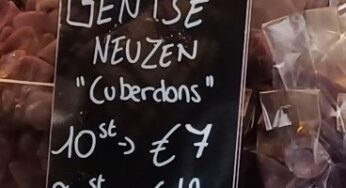 GENTSE
NEUZEN
"Cuberdons"
10st → €7